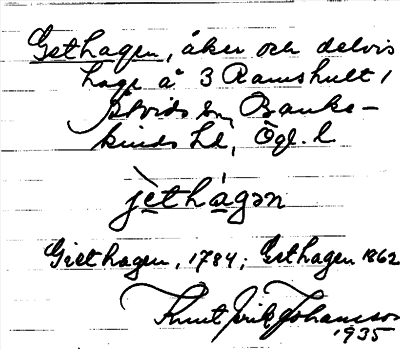 Gethagen, åker och delvis
hage å 3 Ramshult,
Åtvids sn, Banke-
kinds hd, Ögl. l
jèthágən
Giethagen, 1784; Gethagen 1862
Knut Erik Johansson
1935